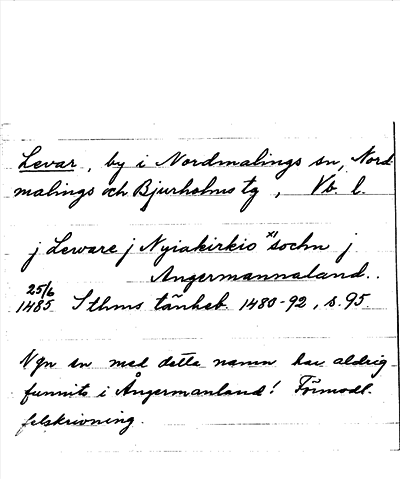 Levar, by i Nordmalings sn, Nord-
malings och Bjurholms tg, Vb. l.
j Leware j Nyiakirkio x) sochn j
Angermannaland.
25/6
1485 Sthms tänkeb. 1480-92, s. 95
Ngn sn med detta namn har aldrig
funnits i Ångermanland! Förmodl.
felskrivning.